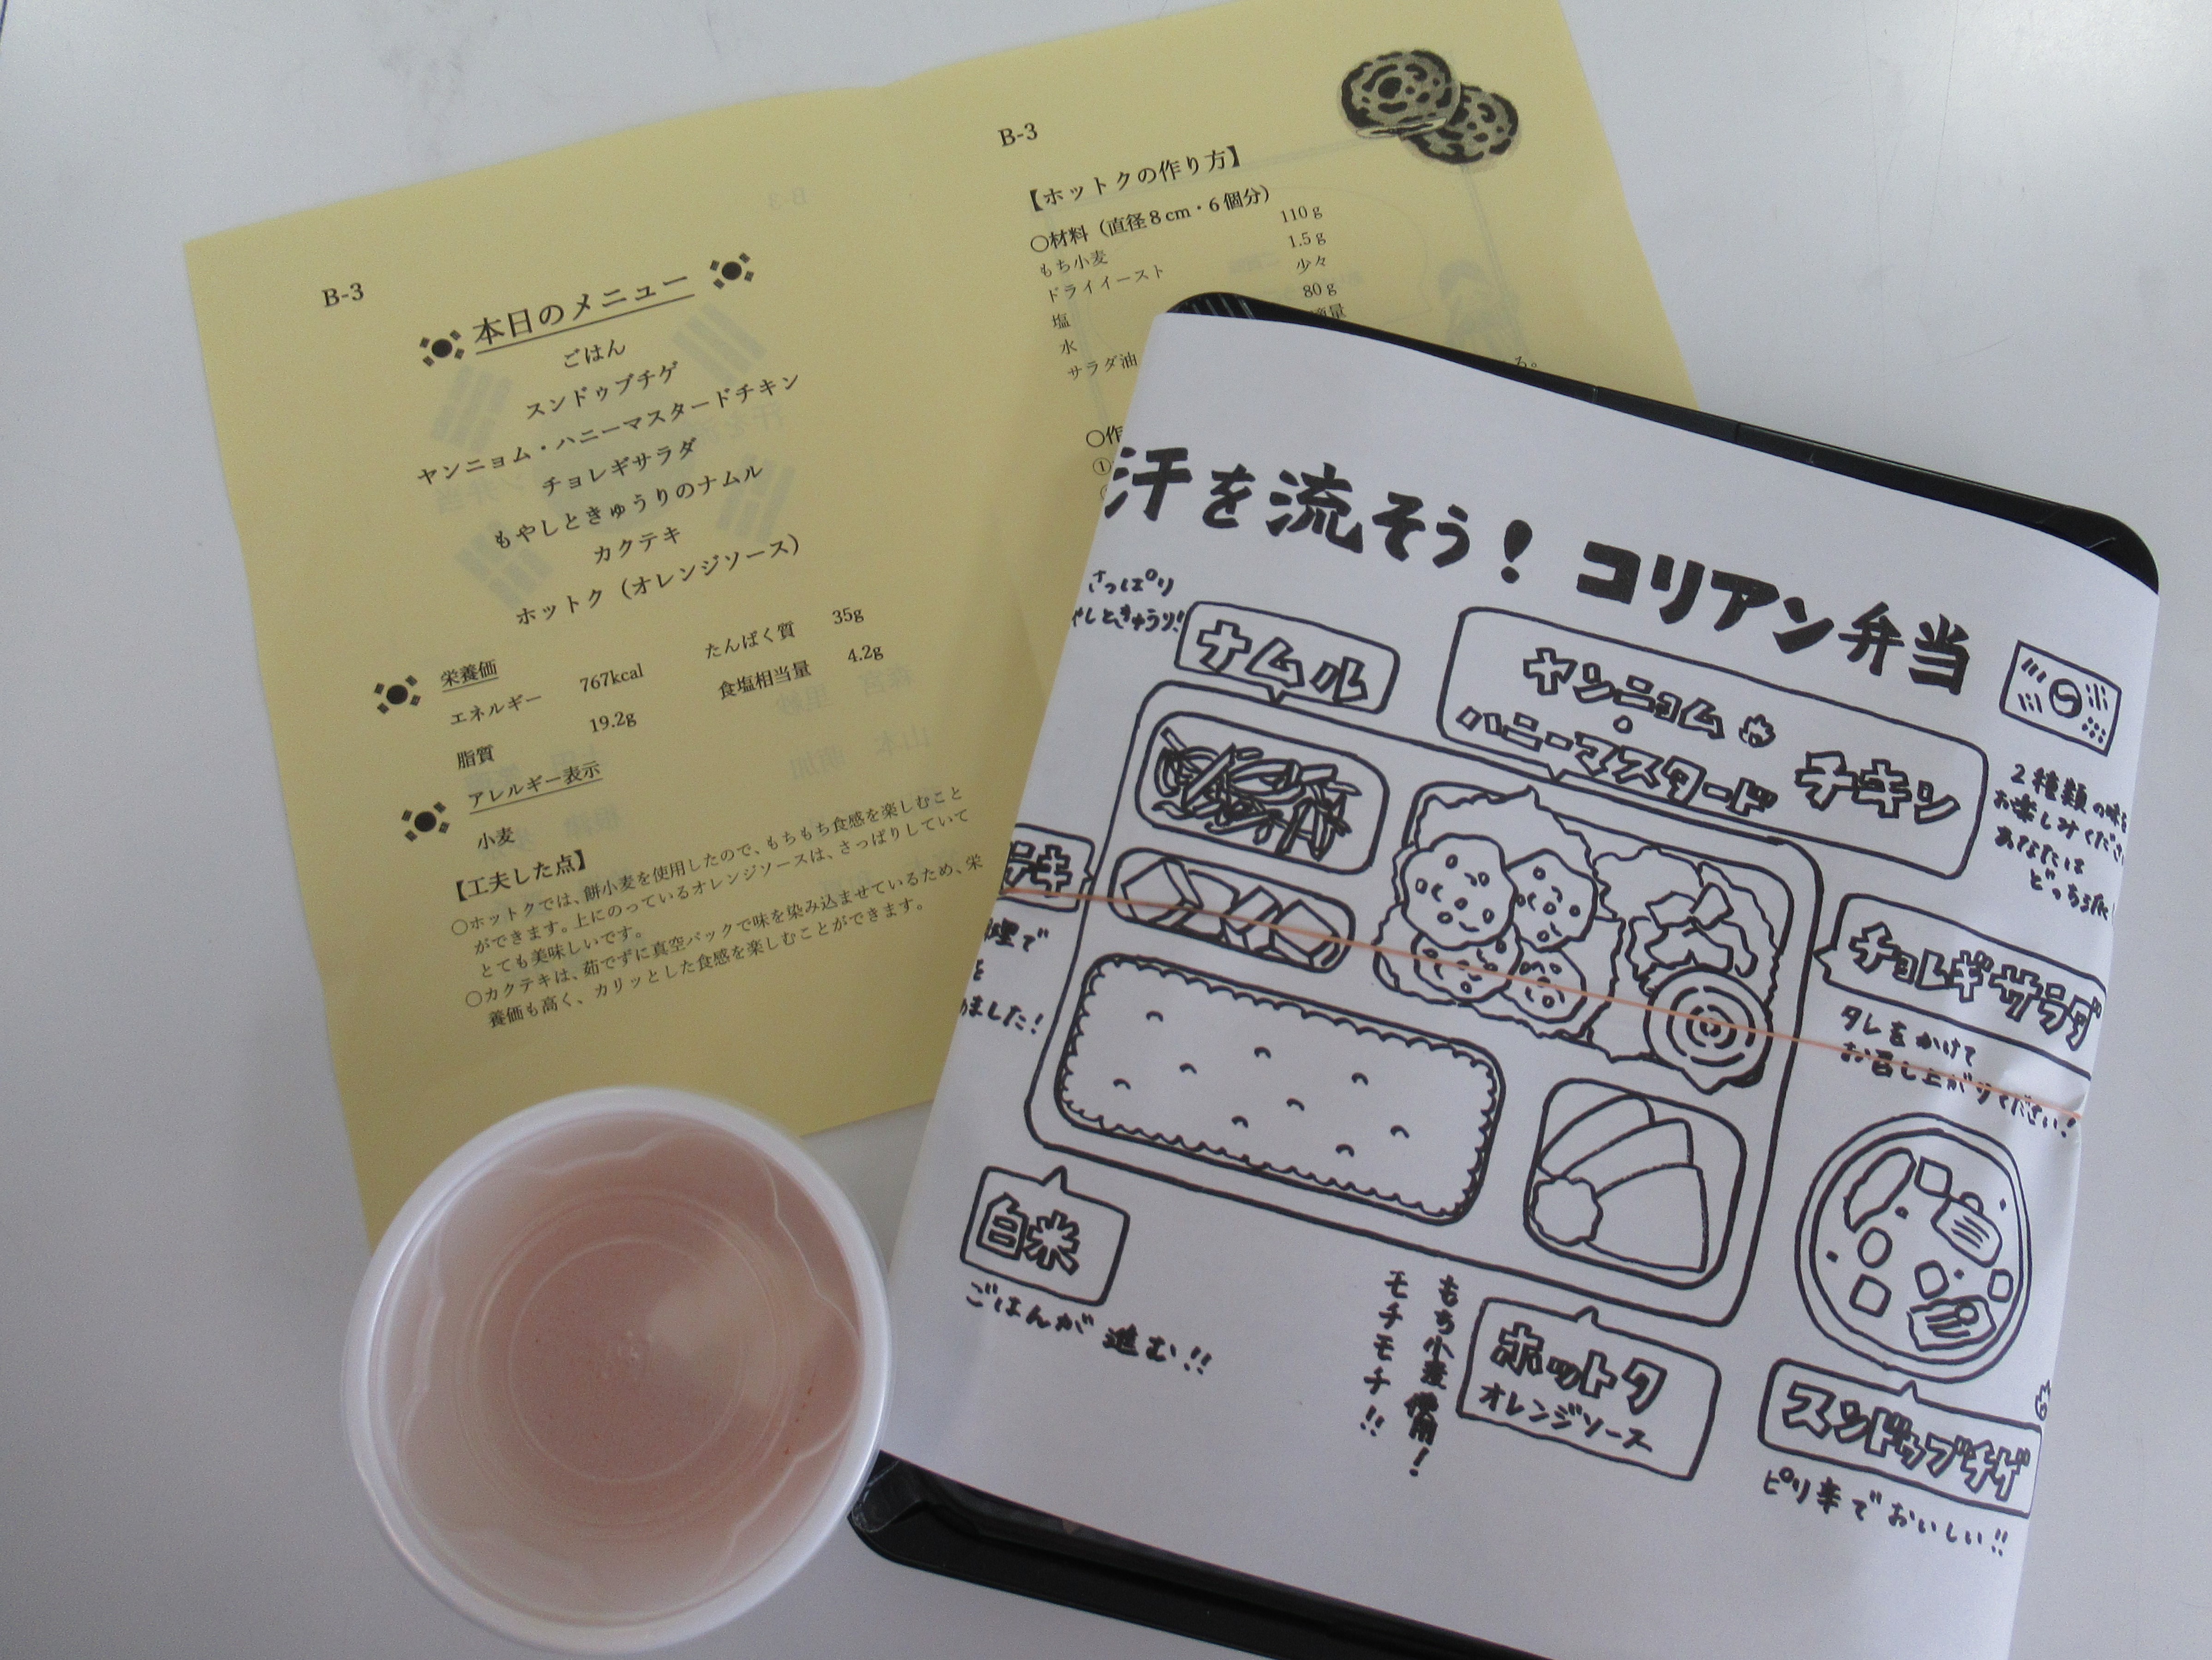 B-3
本日のメニュー
ごはん
スンドゥブチゲ
ヤンニョム・ハニーマスタードチキン
チョレギサラダ
もやしときゅうりのナムル
カクテキ
ホットク（オレンジソース）
栄養価
エネルギー 767kcal たんぱく質 35g
脂質 19.2g 食塩相当量 4.2g
アレルギー表示
小麦
【工夫した点】
○ホットクでは、餅小麦を使用したので、もちもち食感を楽しむこと
ができます。上にのっているオレンジソースは、さっぱりしていて
とても美味しいです。
○カクテキは、茹でずに真空パックで味を染み込ませているため、栄
養価も高く、カリッとした食感を楽しむことができます。
B-3
【ホットクの作り方】
○材料（直径8cm・6個分）
もち小麦 110g
ドライイースト 1.5g
塩 少々
水 80g
サラダ油 適量
る。
○作
①
汗を流そう！コリアン弁当
さっぱり
やしときゅうり！
ナムル
ヤンニョム
ハニーマスタード
チキン
2種類の味を
お楽しみくださ
あなたは
どっち派
テキ
理で
を
めました！
チョレギサラダ
タレをかけて
お召し上がりください！
白米
ごはんが進む!!
もち小麦使用！
モチモチ!!
ホットク
オレンジソース
スンドゥブチゲ
ピリ辛でおいしい!!